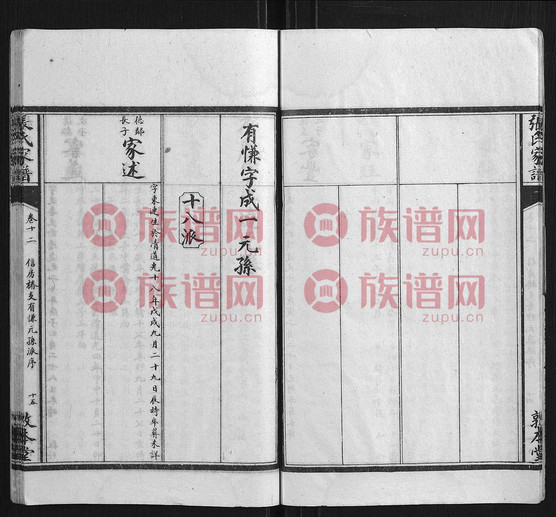 張氏家譜
敦本堂
有慊字成一元孫
十八派
德郇
長子
家述
字東建生於清道光十八年戊戌九月二十九日辰時卒葬未詳
張氏家譜
卷十二
信房椿支有慊元孫派序
十五
敦本堂
族谱网
zupu.cn
族谱网
zupu.cn
族谱网
zupu.cn
族谱网
zupu.cn